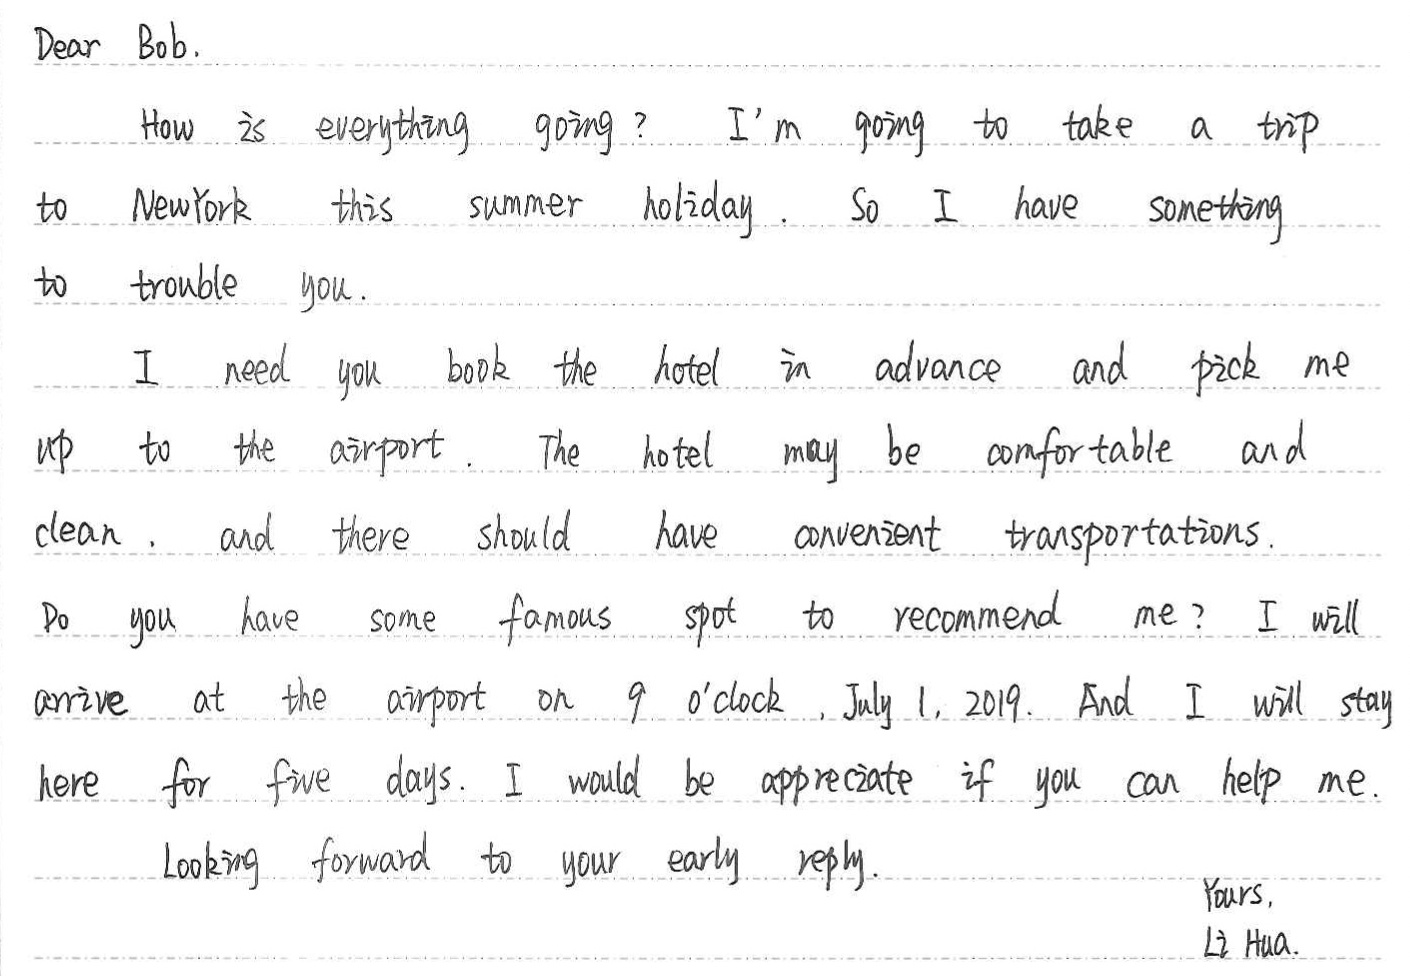 Dear Bob.
How is everything going? I'm going to take a trip
to NewYork this summer holiday. So I have something
to trouble you.
I need you book the hotel in advance and pick me
up to the airport. The hotel may be comfortable and
clean. and there should have convenient transportations.
Do you have some famous spot to recommend me? I will
arrive at the airport on 9 o'clock, July 1, 2019. And I will stay
here for five days. I would be appreciate if you can help me.
Looking forward to your early reply.
Yours,
Li Hua.